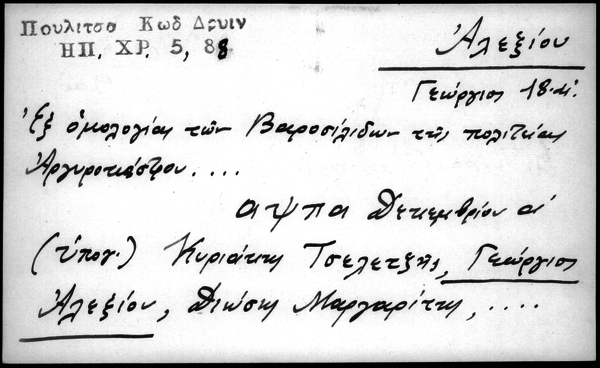 Πουλιτσα Κωδ Δρυιν
ΗΠ. ΧΡ. 5, 88
Ἀλεξίου
Γεώργιος 18.αἰ.
Ἐξ ὁμολογίας τῶν Βαροσιλίδων τῆς πολιτείας
Ἀργυροκάστρου....
αψπα Δεκεμβρίου α'
(ὑπογ.) Κυριάκης Τσελετζῆς, Γεώργιος
Ἀλεξίου, Διώσης Μαργαρίτης, ....